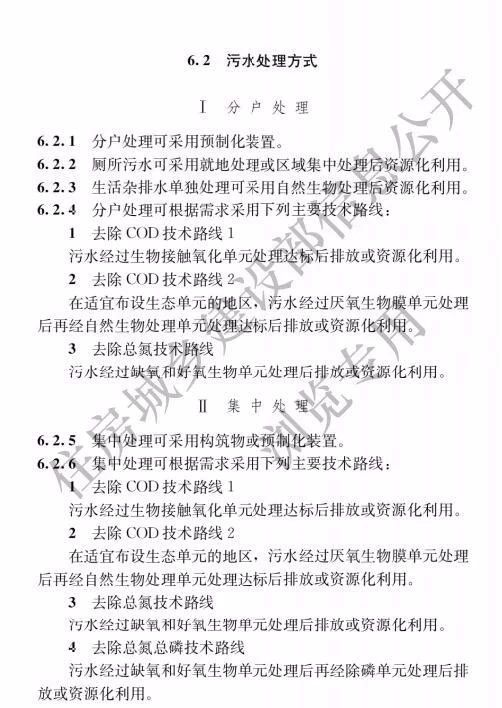 6.2 污水处理方式
Ⅰ 分户处理
6.2.1 分户处理可采用预制化装置。
6.2.2 厕所污水可采用就地处理或区域集中处理后资源化利用。
6.2.3 生活杂排水单独处理可采用自然生物处理后资源化利用。
6.2.4 分户处理可根据需求采用下列主要技术路线：
1 去除 COD 技术路线 1
污水经过生物接触氧化单元处理达标后排放或资源化利用。
2 去除 COD 技术路线 2
在适宜布设生态单元的地区，污水经过厌氧生物膜单元处理
后再经自然生物处理单元处理达标后排放或资源化利用。
3 去除总氮技术路线
污水经过缺氧和好氧生物单元处理后排放或资源化利用。
Ⅱ 集中处理
6.2.5 集中处理可采用构筑物或预制化装置。
6.2.6 集中处理可根据需求采用下列主要技术路线：
1 去除 COD 技术路线 1
污水经过生物接触氧化单元处理达标后排放或资源化利用。
2 去除 COD 技术路线 2
在适宜布设生态单元的地区，污水经过厌氧生物膜单元处理
后再经自然生物处理单元处理达标后排放或资源化利用。
3 去除总氮技术路线
污水经过缺氧和好氧生物单元处理后排放或资源化利用。
4 去除总氮总磷技术路线
污水经过缺氧和好氧生物单元处理后再经除磷单元处理后排
放或资源化利用。
住房城乡建设部信息公开
浏览专用